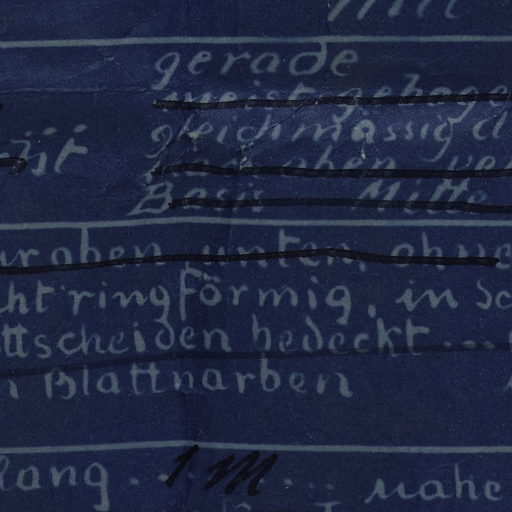 gerade
meist geboge
gleichmässig d
ist
nach oben ver
Basis Mitte
ur oben unten, ohne
cht ringförmig, in Sc
ttscheiden bedeckt...
n Blattnarben
lang... 1 M... nahe